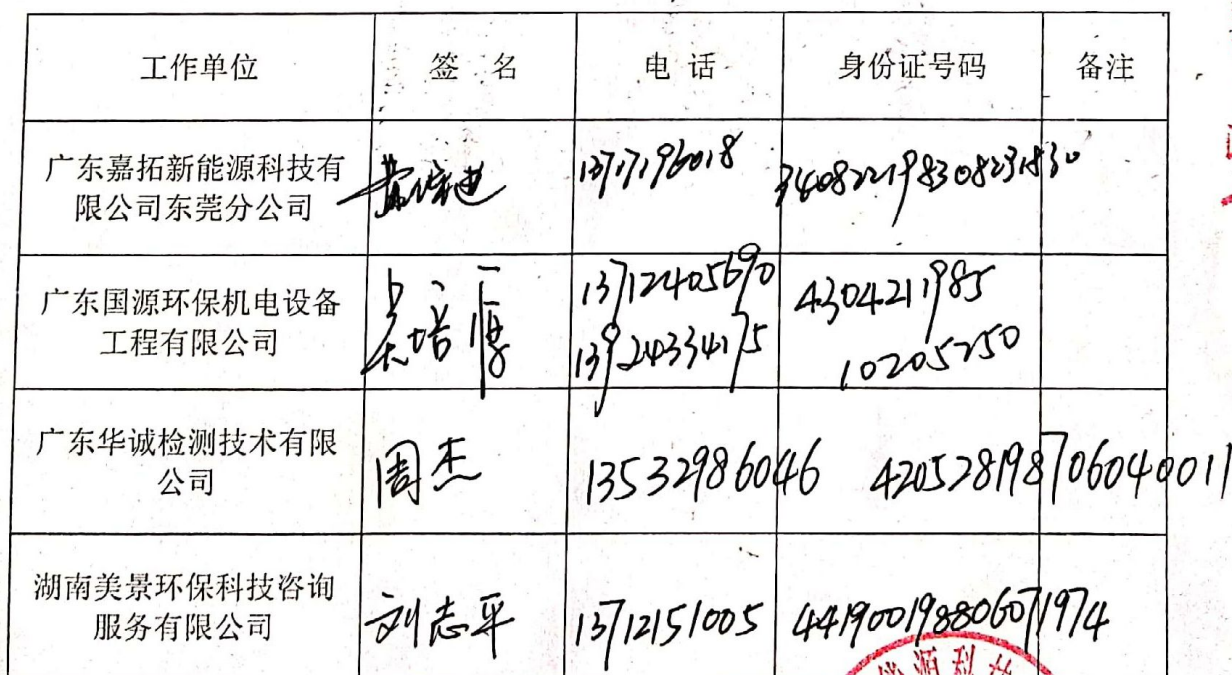 工作单位 签 名 电 话 身份证号码 备注
广东嘉拓新能源科技有
限公司东莞分公司
13717196018 340822198308231830
广东国源环保机电设备
工程有限公司
培厚
13712405690 4304211985
13924334175 10205250
广东华诚检测技术有限
公司
周杰 13532986046 420528198706040011
湖南美景环保科技咨询
服务有限公司
刘志平 13712151005 441900198806071974
源科技